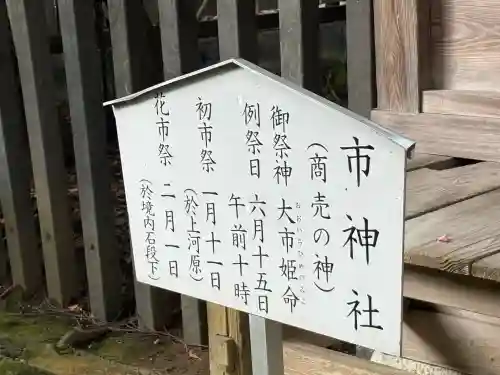 市神社
(商売の神)
御祭神 大市姫命
おおいちひめのみこと
例祭日 六月十五日
午前十時
初市祭 一月十一日
(於上河原)
花市祭 二月一日
(於境内石段下)